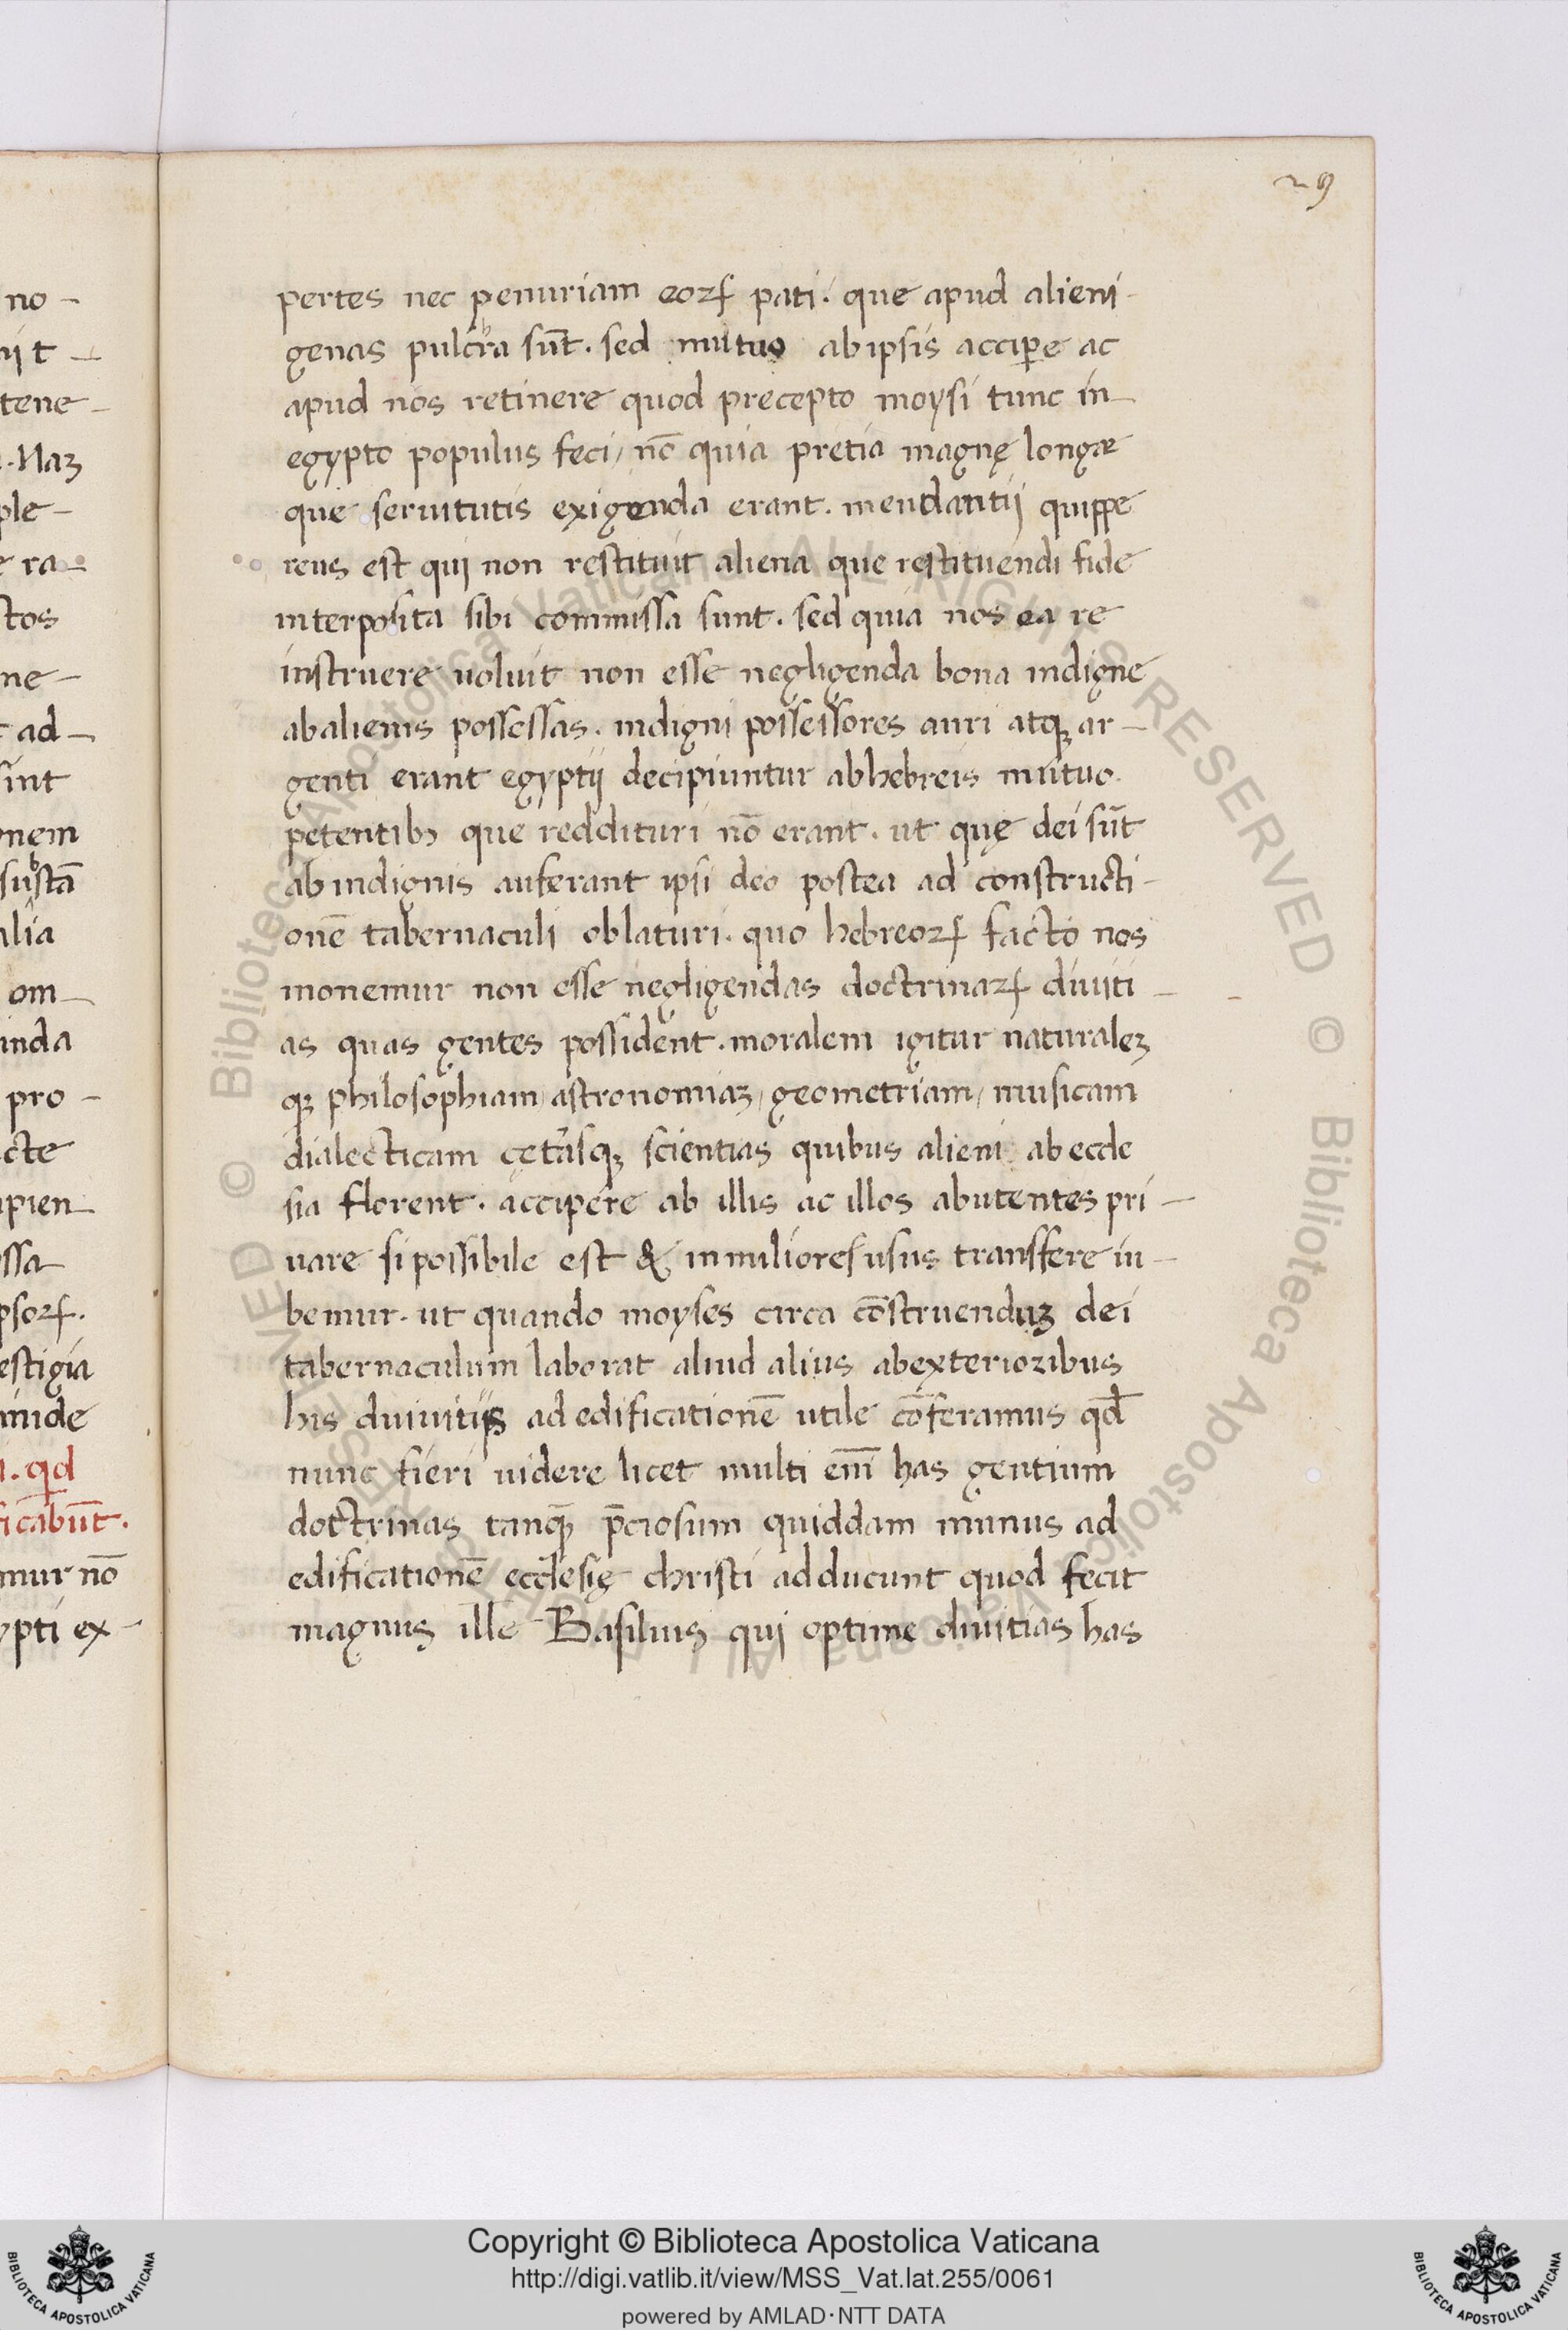 29
no-
nit-
tene-
. Naꝫ
ple-
e ra-
ctos
ne-
t ad-
sint
onem
sustā
alia
om-
inda
pro-
cte
apien-
ossa-
psoꝝ.
estigia
inide
i. qd
ficabūt.
mur nō
ypti ex-
pertes nec penuriam eoꝝ pati. que apud alieni-
genas pulchra sūt. sed mutuo ab ipsis acciꝑe ac
apud nos retinere quod precepto moysi tunc in-
egypto populus feci, nō quia pretia magnę longæ
que seruitutis exigenda erant. mendantij quippe
reus est qui non restituit aliena que restituendi fide
interposita sibi commissa sunt. sed quia nos ea re
instruere uoluit non esse negligenda bona indigne
ab alienis possessas. indigni possessores auri atqꝫ ar-
genti erant egyptij decipiuntur ab hebreis mutuo
petentibꝫ que reddituri nō erant. ut quę dei sūt
ab indignis auferant ipsi deo postea ad constructi-
onē tabernaculi oblaturi. quo hebreoꝝ facto nos
monemur non esse negligendas doctrinaꝝ diuiti-
as quas gentes possident. moralem igitur naturaleꝫ
qꝫ philosophiam, astronomiaꝫ, geometriam, musicam
dialecticam cętāsqꝫ scientias quibus alieni ab eccle
sia florent. accipere ab illis ac illos abutentes pri-
uare si possibile est & in miliores usus transfere iu-
bemur. ut quando moyses circa cōstruenduꝫ dei
tabernaculum laborat aliud alius ab exterioribus
his diuiuitijs ad edificationē utile cōferamus qđ
nunc fieri uidere licet multi enī has gentium
doctrinas tanqꝫ p̄ciosum quiddam munus ad
edificationē ecclesię christi adducunt quod fecit
magnus ille Basilius qui optime diuitias has
© Biblioteca Apostolica Vaticana ALL RIGHTS RESERVED © Biblioteca Apostolica Vaticana ALL RIGHTS RESERVED
Copyright © Biblioteca Apostolica Vaticana
http://digi.vatlib.it/view/MSS_Vat.lat.255/0061
powered by AMLAD·NTT DATA
BIBLIOTECA APOSTOLICA VATICANA
BIBLIOTECA APOSTOLICA VATICANA